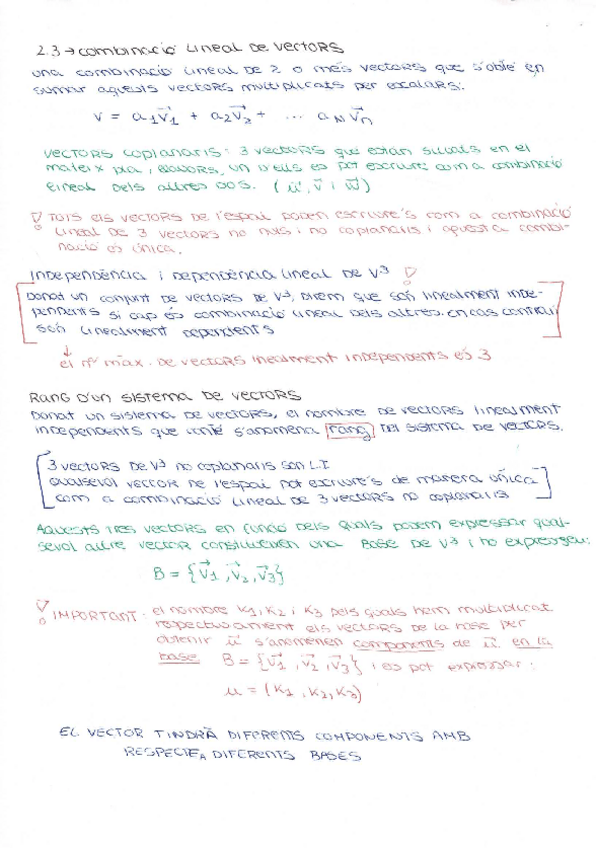 2.3 → combinació lineal de vectors
una combinació lineal de 2 o més vectors que s'obté en
sumar aquests vectors multiplicats per escalars:
v = a₁v⃗₁ + a₂v⃗₂ + ... aₙv⃗ₙ
vectors coplanaris: 3 vectors que estàn situats en el
mateix pla, llavors, un d'ells es pot escriure com a combinació
lineal dels altres dos. (u⃗, v⃗ i w⃗)
! Tots els vectors de l'espai poden escriure's com a combinació
lineal de 3 vectors no nuls i no coplanaris i aquesta combi-
nació és única.
Independència i dependència lineal de V³ !
Donat un conjunt de vectors de V³, direm que són linealment inde-
pendents si cap és combinació lineal dels altres. en cas contrari
són linealment dependents
↓
el nº màx. de vectors linealment independents és 3
Rang d'un sistema de vectors
Donat un sistema de vectors, el nombre de vectors linealment
independents que conté s'anomena rang del sistema de vectors.
3 vectors de V³ no coplanaris són L.I
qualsevol vector de l'espai pot escriure's de manera única
com a combinació lineal de 3 vectors no coplanaris
Aquests tres vectors en funció dels quals podem expressar qual-
sevol altre vector constitueixen una Base de V³ i ho expressem:
B = {v⃗₁, v⃗₂, v⃗₃}
! IMPORTANT: el nombre K₁, K₂ i K₃ pels quals hem multiplicat
respectivament els vectors de la base per
obtenir u⃗ s'anomenen components de u⃗ en la
base B = {v⃗₁, v⃗₂, v⃗₃} i es pot expressar:
u = (K₁, K₂, K₃)
EL VECTOR TINDRÀ DIFERENTS COMPONENTS AMB
RESPECTE A DIFERENTS BASES